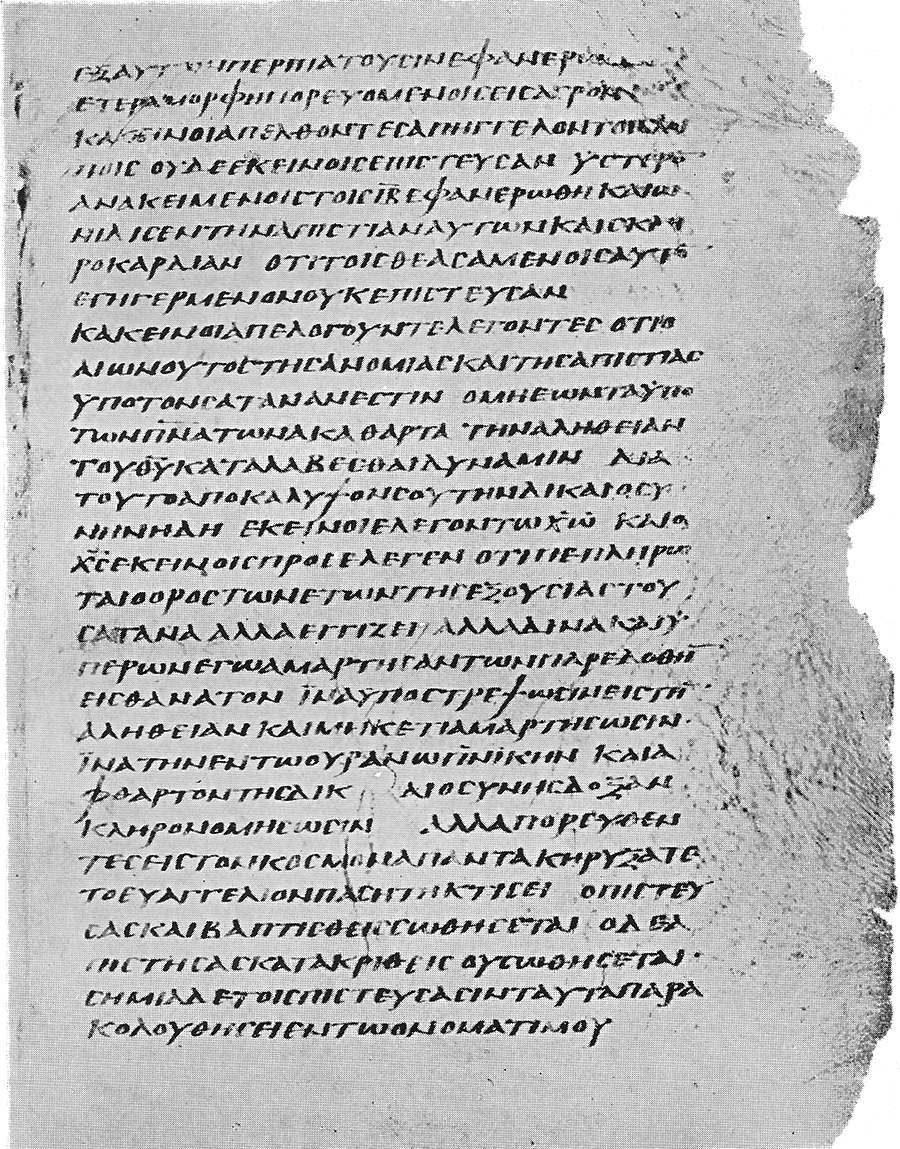 ΕΞΑΥΤΩΝΠΕΡΠΙΑΤΟΥCΙΝΕΦΑΝΕΡΩ
ΕΤΕΡΑΜΟΡΦΗΠΟΡΕΥΟΜΕΝΟΙCΕΙCΑΓΡΟΝ
ΚΑΚΕΙΝΟΙΑΠΕΛΘΟΝΤΕCΑΠΗΓΓΕΛΟΝΤΟΙCΛΟΙ
ΠΟΙC ΟΥΔΕΕΚΕΙΝΟΙCΕΠΙCΤΕΥCΑΝ ΥCΤΕΡΟ̅
ΑΝΑΚΕΙΜΕΝΟΙCΤΟΙCΙ̅Β̅ΕΦΑΝΕΡΩΘΗΚΑΙΩ
ΝΙΔΙCΕΝΤΗΝΑΠΙCΤΙΑΝΑΥΤΩΝΚΑΙCΚΛΗ
ΡΟΚΑΡΔΙΑΝ ΟΤΙΤΟΙCΘΕΑCΑΜΕΝΟΙCΑΥΤΟ̅
ΕΓΗΓΕΡΜΕΝΟΝΟΥΚΕΠΙCΤΕΥCΑΝ
ΚΑΚΕΙΝΟΙΑΠΕΛΟΓΟΥΝΤΕΛΕΓΟΝΤΕC ΟΤΙΟ
ΑΙΩΝΟΥΤΟCΤΗCΑΝΟΜΙΑCΚΑΙΤΗCΑΠΙCΤΙΑC
ΥΠΟΤΟΝCΑΤΑΝΑΝΕCΤΙΝ ΟΜΗΕΩΝΤΑΫΠΟ
ΤΩΝΠ̅Ν̅ΑΤΩΝΑΚΑΘΑΡΤΑ ΤΗΝΑΛΗΘΕΙΑΝ
ΤΟΥΘ̅Υ̅ΚΑΤΑΛΑΒΕCΘΑΙΔΥΝΑΜΙΝ ΔΙΑ
ΤΟΥΤΟΑΠΟΚΑΛΥΨΟΝCΟΥΤΗΝΔΙΚΑΙΟCΥ
ΝΗΝΗΔΗ ΕΚΕΙΝΟΙΕΛΕΓΟΝΤΩΧ̅Ω̅ ΚΑΙΟ
Χ̅C̅ΕΚΕΙΝΟΙCΠΡΟCΕΛΕΓΕΝ ΟΤΙΠΕΠΛΗΡΩ
ΤΑΙΟΟΡΟCΤΩΝΕΤΩΝΤΗCΕΞΟΥCΙΑCΤΟΥ
CΑΤΑΝΑ ΑΛΛΑΕΓΓΙΖΕΙ ΑΛΛΑΔΙΝΑΚΑΙΫ
ΠΕΡΩΝΕΓΩΑΜΑΡΤΗCΑΝΤΩΝΠΑΡΕΔΟΘΗ̅
ΕΙCΘΑΝΑΤΟΝ ΪΝΑΥΠΟCΤΡΕΨΩCΙΝΕΙCΤΗ̅
ΑΛΗΘΕΙΑΝ ΚΑΙΜΗΚΕΤΙΑΜΑΡΤΗCΩCΙΝ·
ΪΝΑΤΗΝΕΝΤΩΟΥΡΑΝΩΠ̅Ν̅ΙΚΗΝ ΚΑΙΑ
ΦΘΑΡΤΟΝΤΗCΔΙΚ ΑΙΟCΥΝΗCΔΟΞΑΝ
ΚΛΗΡΟΝΟΜΗCΩCΙΝ ΑΛΛΑΠΟΡΕΥΘΕΝ
ΤΕCΕΙCΤΟΝΚΟCΜΟΝΑΠΑΝΤΑΚΗΡΥΞΑΤΕ
ΤΟΕΥΑΓΓΕΛΙΟΝΠΑCΗΤΗΚΤΙCΕΙ ΟΠΙCΤΕΥ
CΑCΚΑΙΒΑΠΤΙCΘΕΙCCΩΘΗCΕΤΑΙ ΟΔΕΑ
ΠΙCΤΗCΑCΚΑΤΑΚΡΙΘΕΙC ΟΥCΩΘΗCΕΤΑΙ·
CΗΜΙΑΔΕΤΟΙCΠΙCΤΕΥCΑCΙΝΤΑΥΤΑΠΑΡΑ
ΚΟΛΟΥΘΗCΕΙΕΝΤΩΟΝΟΜΑΤΙΜΟΥ